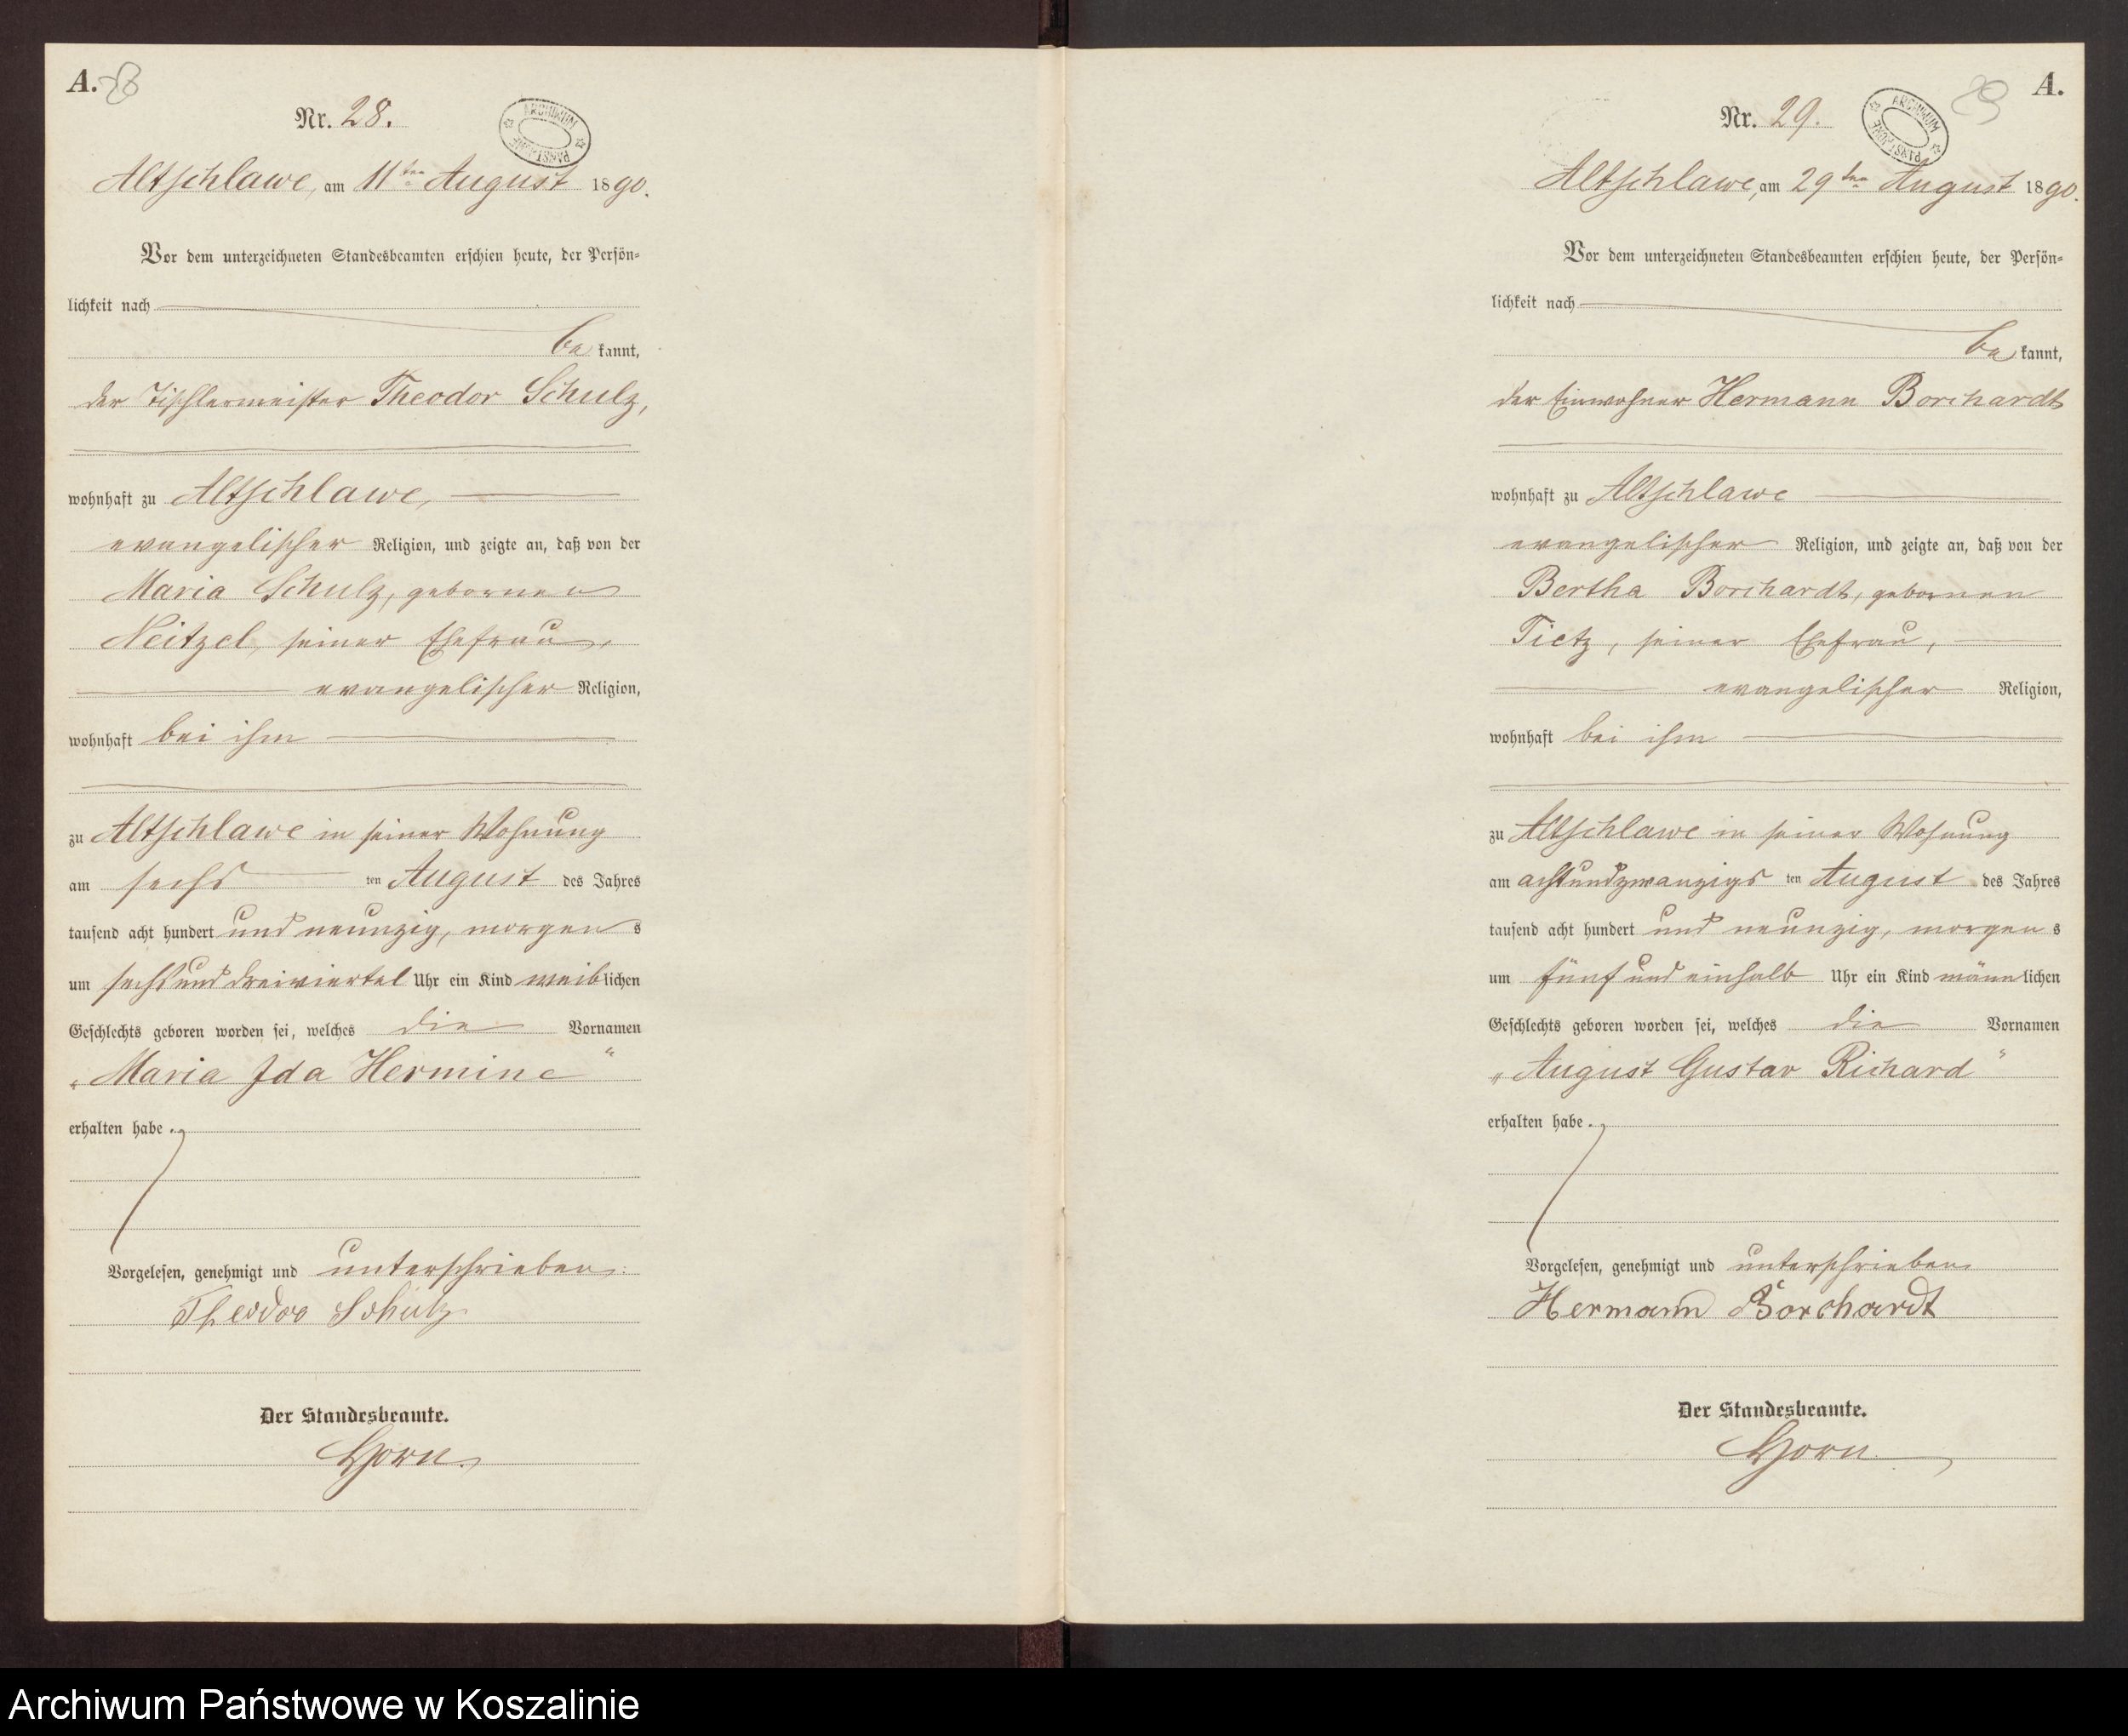 A. 28
Nr. 28.
ARCHIWUM PAŃSTWOWE
Altschlawe, am 11ten August 1890.
Vor dem unterzeichneten Standesbeamten erschien heute, der Persön-
lichkeit nach
be kannt,
der Tischlermeister Theodor Schulz,
wohnhaft zu Altschlawe,
evangelischer Religion, und zeigte an, daß von der
Maria Schulz, gebornen
Neitzel, seiner Ehefrau,
evangelischer Religion,
wohnhaft bei ihm
zu Altschlawe in seiner Wohnung
am sechs ten August des Jahres
tausend acht hundert und neunzig, morgens
um sechs und dreiviertel Uhr ein Kind weiblichen
Geschlechts geboren worden sei, welches die Vornamen
„Maria Ida Hermine“
erhalten habe.
Vorgelesen, genehmigt und unterschrieben:
Theodor Schulz
Der Standesbeamte.
Horn.
29 A.
Nr. 29.
ARCHIWUM PAŃSTWOWE
Altschlawe, am 29ten August 1890.
Vor dem unterzeichneten Standesbeamten erschien heute, der Persön-
lichkeit nach
be kannt,
der Einwohner Hermann Borchardt
wohnhaft zu Altschlawe
evangelischer Religion, und zeigte an, daß von der
Bertha Borchardt, gebornen
Tietz, seiner Ehefrau,
evangelischer Religion,
wohnhaft bei ihm
zu Altschlawe in seiner Wohnung
am achtundzwanzigs ten August des Jahres
tausend acht hundert und neunzig, morgens
um fünf und einhalb Uhr ein Kind männlichen
Geschlechts geboren worden sei, welches die Vornamen
„August Gustav Richard“
erhalten habe.
Vorgelesen, genehmigt und unterschrieben
Hermann Borchardt
Der Standesbeamte.
Horn
Archiwum Państwowe w Koszalinie